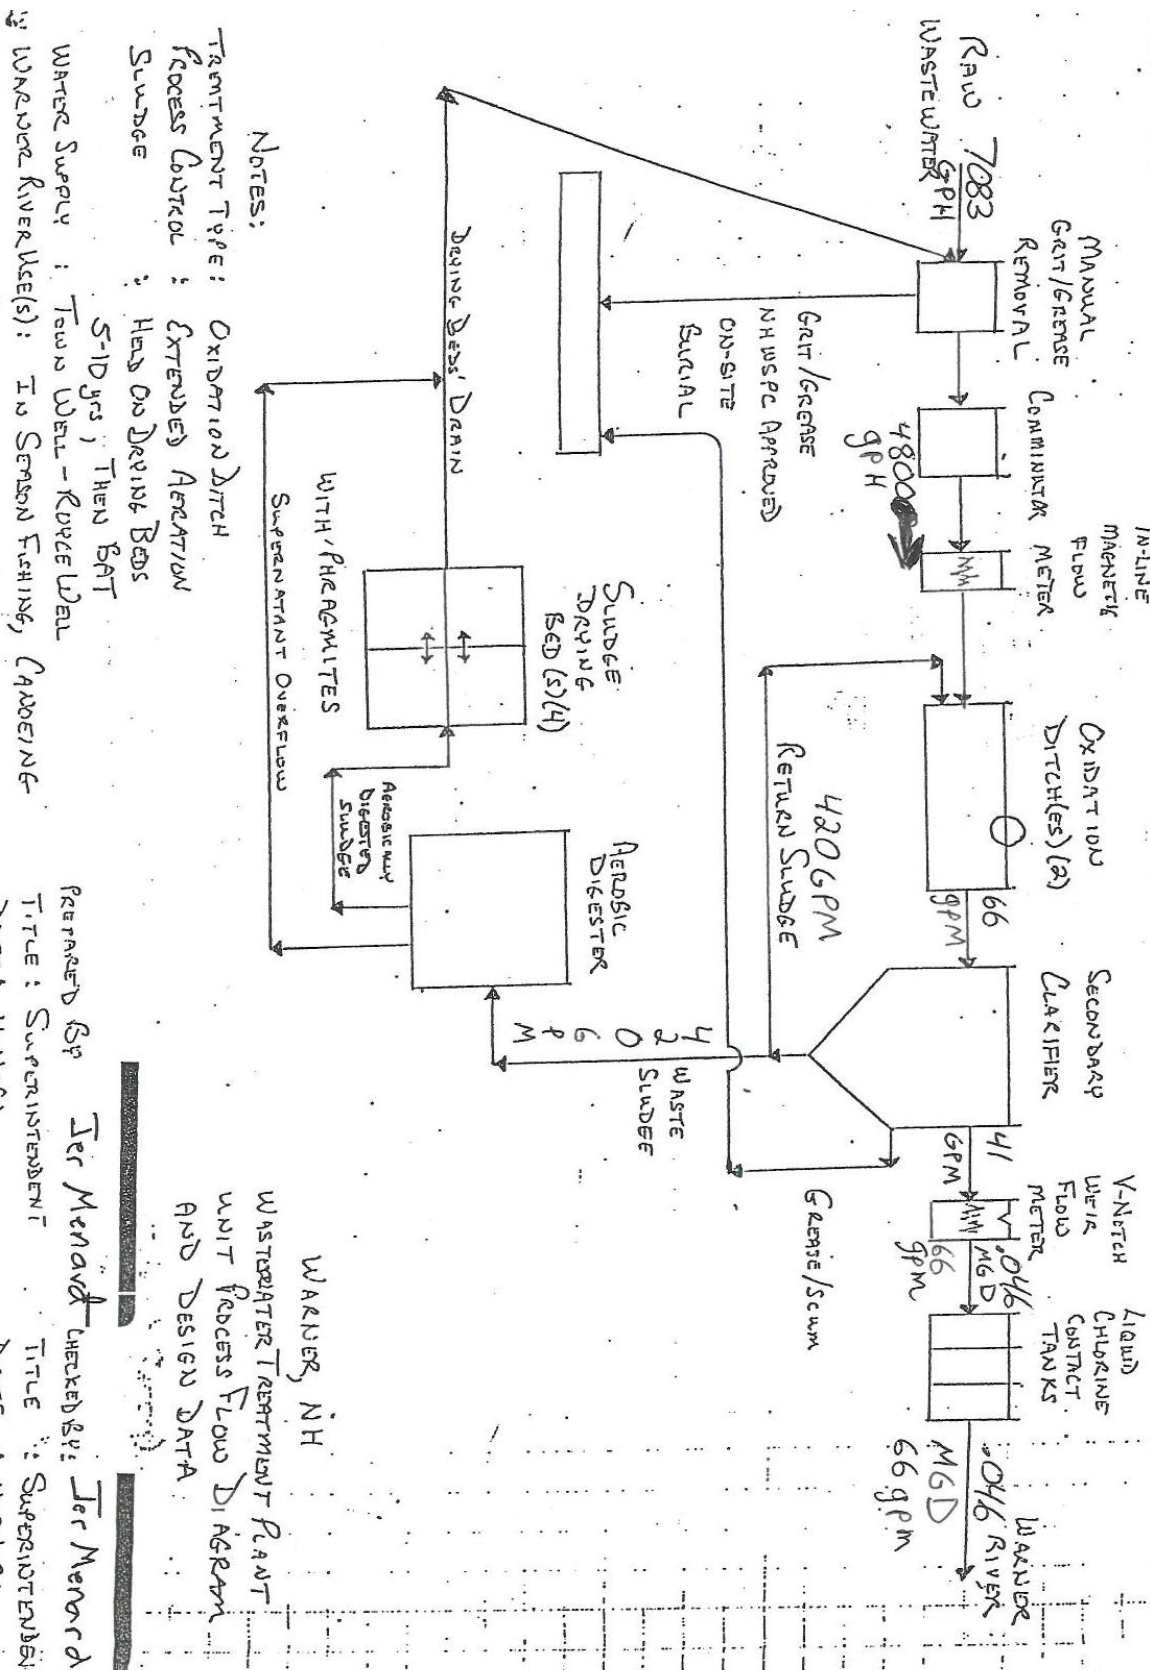 RAW
WASTEWATER
7083
GPH
MANUAL
GRIT/GREASE
REMOVAL
COMMINUTOR
4800
gPH
IN-LINE
MAGNETIC
FLOW
METER
OXIDATION
DITCH(ES)(2)
66
gPM
SECONDARY
CLARIFIER
41
GPM
V-NOTCH
WEIR
FLOW
METER
.046
MGD
66
gpm
LIQUID
CHLORINE
CONTACT
TANKS
.046
MGD
66 gpm
WARNER
RIVER
GRIT/GREASE
NHWSPC APPROVED
ON-SITE
BURIAL
420 GPM
RETURN SLUDGE
GREASE/SCUM
4
2
0
G
P
M
WASTE
SLUDEE
DRYING BEDS' DRAIN
SLUDGE
DRYING
BED(S)(4)
WITH PHRAGMITES
AEROBIC
DIGESTER
AEROBICALLY
DIGESTED
SLUDGE
SUPERNATANT OVERFLOW
NOTES:
TREATMENT TYPE: OXIDATION DITCH
PROCESS CONTROL : EXTENDED AERATION
SLUDGE : HELD ON DRYING BEDS
5-10 yrs; THEN BAT
WATER SUPPLY : TOWN WELL - ROYCE WELL
WARNER RIVER USE(S): IN SEASON FISHING, CANOEING
WARNER, NH
WASTEWATER TREATMENT PLANT
UNIT PROCESS FLOW DIAGRAM
AND DESIGN DATA
PREPARED BY Jer Menard CHECKED BY: Jer Menard
TITLE: SUPERINTENDENT TITLE: SUPERINTENDEN